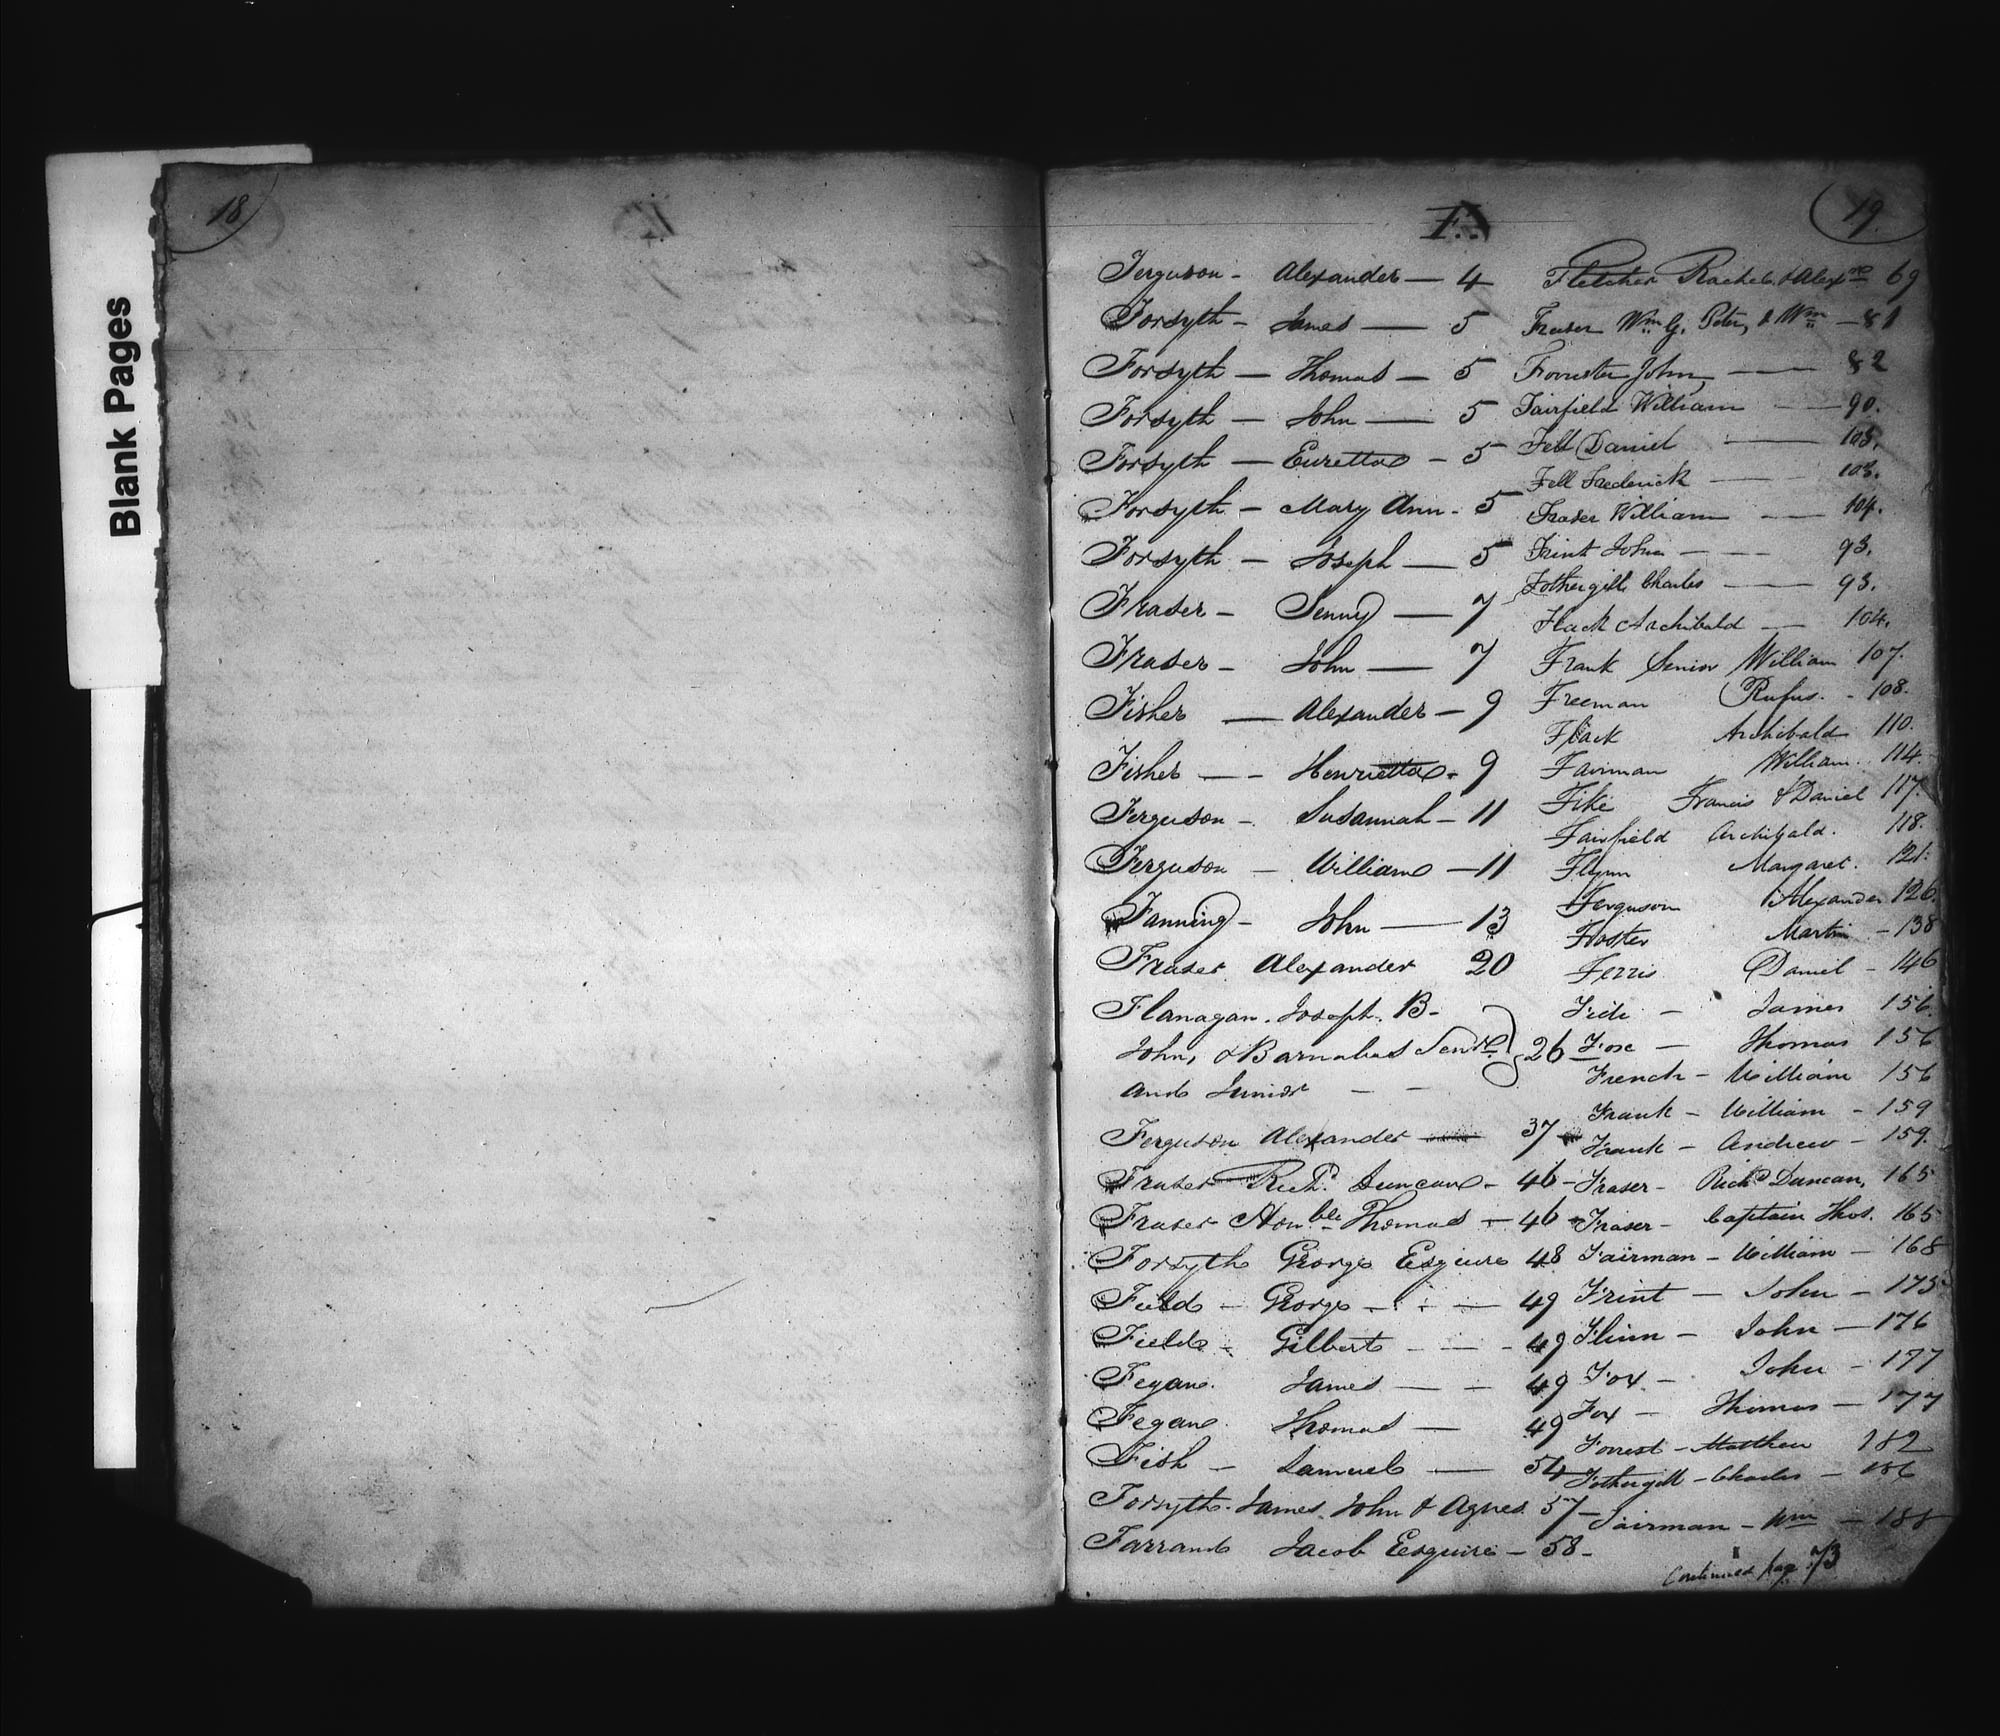 Blank Pages
18
19.
F.
Ferguson - Alexander — 4
Forsyth - James — 5
Forsyth — Thomas — 5
Forsyth — John — 5
Forsyth — Euretta - 5
Forsyth - Mary Ann - 5
Forsyth - Joseph — 5
Fraser - Jenny — 7
Fraser - John — 7
Fisher — Alexander — 9
Fisher — - Henrietta - 9
Ferguson - Susannah - 11
Ferguson - William - 11
Fanning - John — 13
Fraser Alexander 20
Flanagan. Joseph. B-
John, & Barnabas Senr. } 26
and Junior - -
Ferguson Alexander 37
Fraser Richd. Duncan - 46
Fraser Honble. Thomas - 46
Forsyth George Esquire 48
Field - George - - - 49
Field - Gilbert - - - 49
Fegan. James — - 49
Fegan. Thomas — 49
Fish - Samuel — 54
Forsyth. James. John & Agnes. 57
Farrand Jacob Esquire - 58 -
Fletcher Rachel & Alexr 69
Fraser Wm G. Peter, & Wm - 81
Forrester John — 82
Fairfield William — 90.
Fell Daniel — 103.
Fell Frederick — 103.
Fraser William — 104.
Frint John — - 93.
Fothergill Charles — 93.
Flack Archibald — 104.
Frank Senior William 107.
Freeman Rufus. - 108.
Flack Archibald 110.
Fairman William. 114.
Fike Francis & Daniel 117.
Fairfield Archibald. 118.
Flynn Margaret. 121.
Ferguson Alexander 126.
Froster Martin - 138
Ferris Daniel - 146
James 156.
Fox — Thomas 156
French - William 156
Frank - William - 159
Frank - Andrew - 159.
Fraser - Richd Duncan, 165
Fraser - Captain Thos. 165
Fairman - William - 168
Frint — John - 175
Flinn - John — 176
Fox - John - 177
Fox - Thomas - 177
Forrest - Matthew 182
Fothergill - Charles - 186
Fairman - Wm — 188
Continued pag. 73